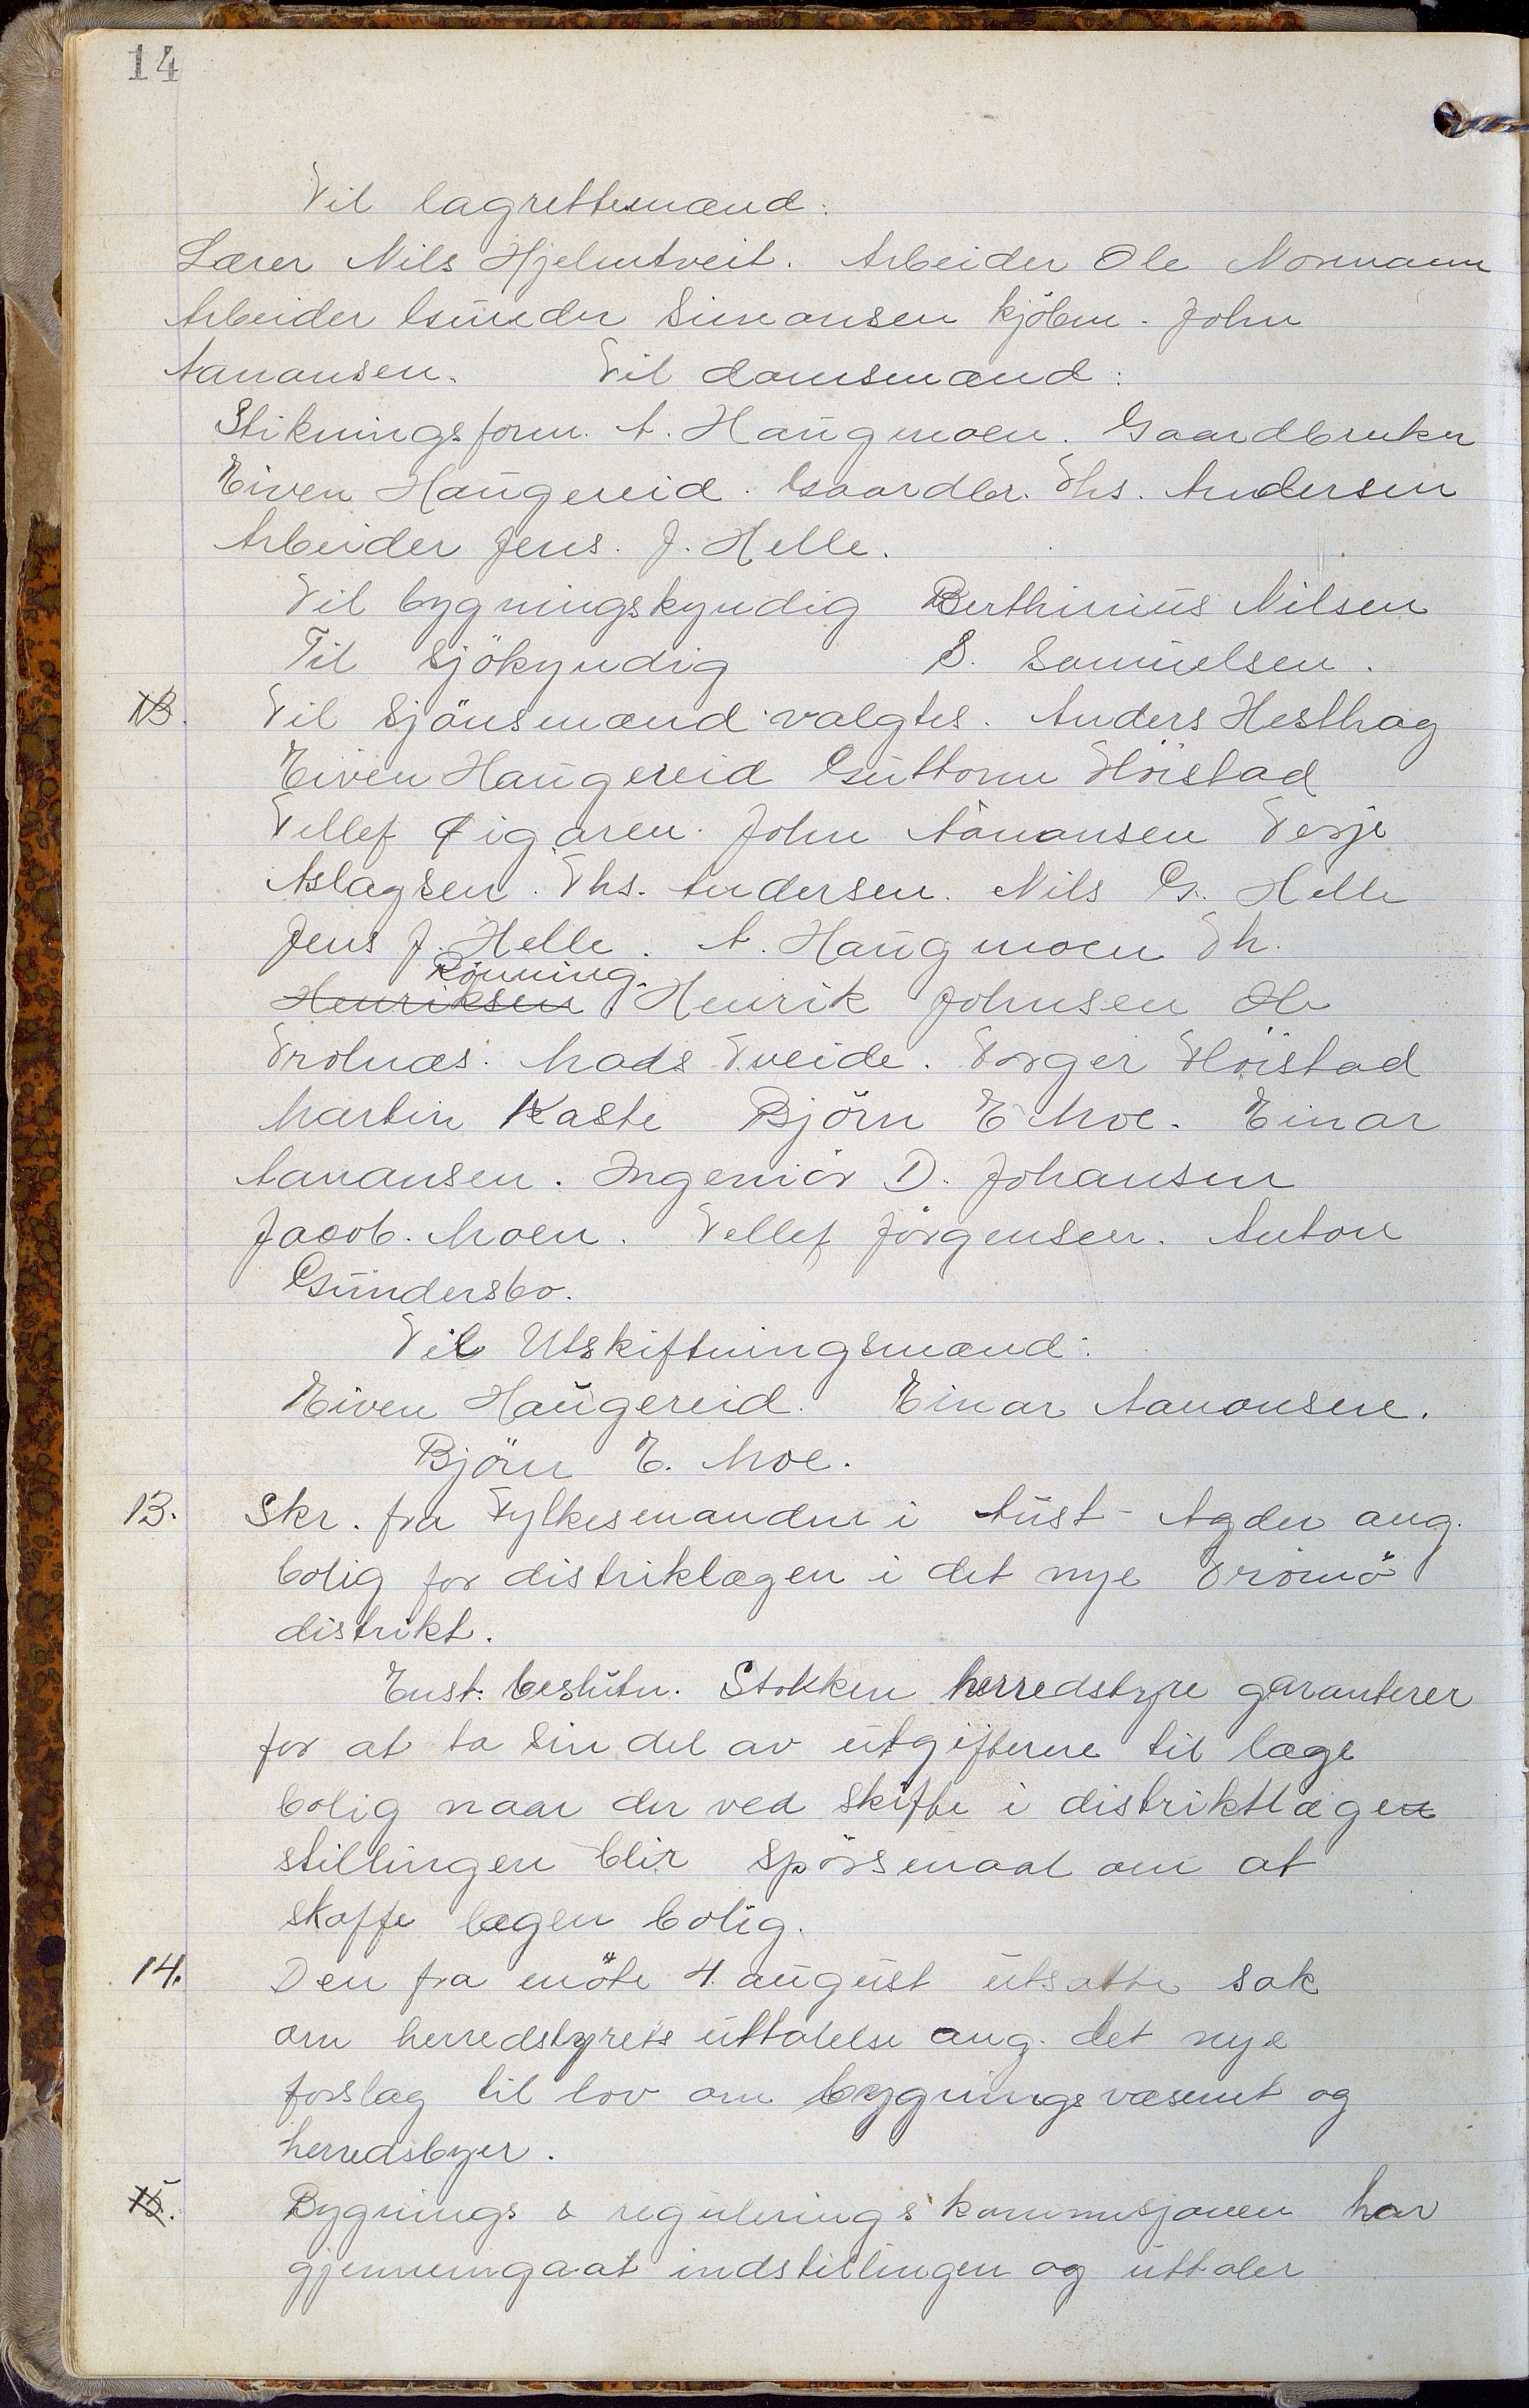 14
Til lagrettemænd:
Lærer Nils Hjelmtveit. Arbeider Ole Normann
Arbeider Gunder Simonsen kjöbm. John
Aanonsen. Til domsmænd:
Stikningsform. A. Haugmoen. Gaardbruker
Eiven Haugereid. Gaardbr. Ths. Andersen
Arbeider Jens. J. Helle.
Til bygningskyndig Berthinius Nilsen
Til sjökyndig S. Samuelsen.
13. Til Sjönsmænd valgtes. Anders Hesthag
Eiven Haugereid Guttorm Höistad
Tellef Tigaren. John Aanonsen Terje
Aslagsen. Ths. Andersen. Nils G. Helle
Jens J. Helle. A. Haugmoen Th.
Rönning.
Henriksen Henrik Johnsen Ole
Trolnæs. Mads Tveide. Torger Höistad
Martin Kaste Björn E Moe. Einar
Aanonsen. Ingeniör D. Johansen
Jacob. Moen. Tellef Jörgensen. Anton
Gundersbo.
Til Utskiftningsmænd:
Eiven Haugereid. Einar Aanonsen.
Björn E. Moe.
13. Skr. fra Fylkesmanden i Aust-Agder ang.
bolig for distriklægen i det nye Tromö
distrikt.
Enst. beslutn. Stokken herredstyre garanterer
for at ta sin del av utgifterne til læge
bolig naar der ved skifte i distriktlægen
stillingen blir spörsmaal om at
skaffe lægen bolig.
14. Den fra möte 4 august utsatte sak
om herredstyrets uttalelse ang. det nye
forslag til lov om bygningsvæsenet og
herredsbyer.
15. Bygnings & regulerings kommisjonen har
gjennemgaat indstillingen og uttaler